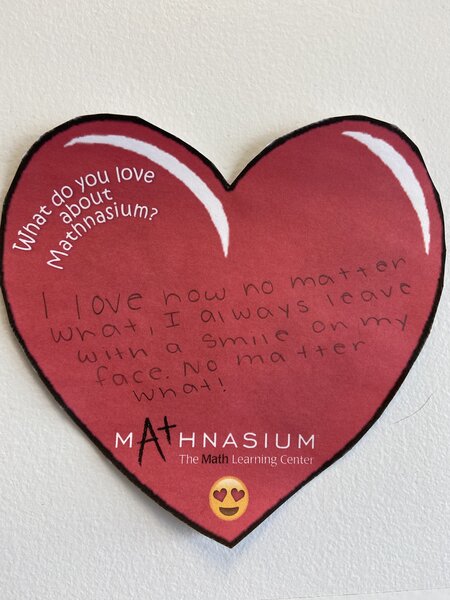 What do you love
about
Mathnasium?
I love how no matter
what, I always leave
with a smile on my
face. No matter
what!
MA+HNASIUM
The Math Learning Center